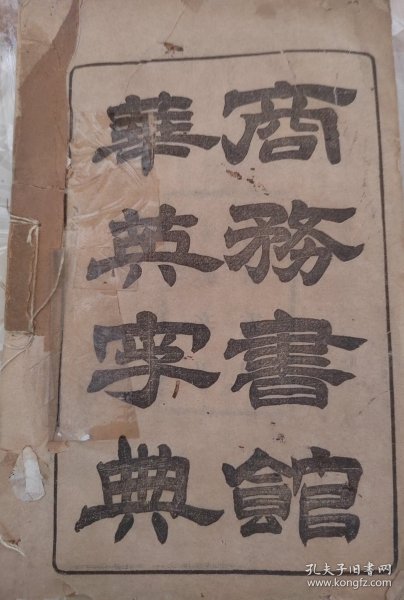 商務書館
華英字典
孔夫子旧书网
www.kongfz.com